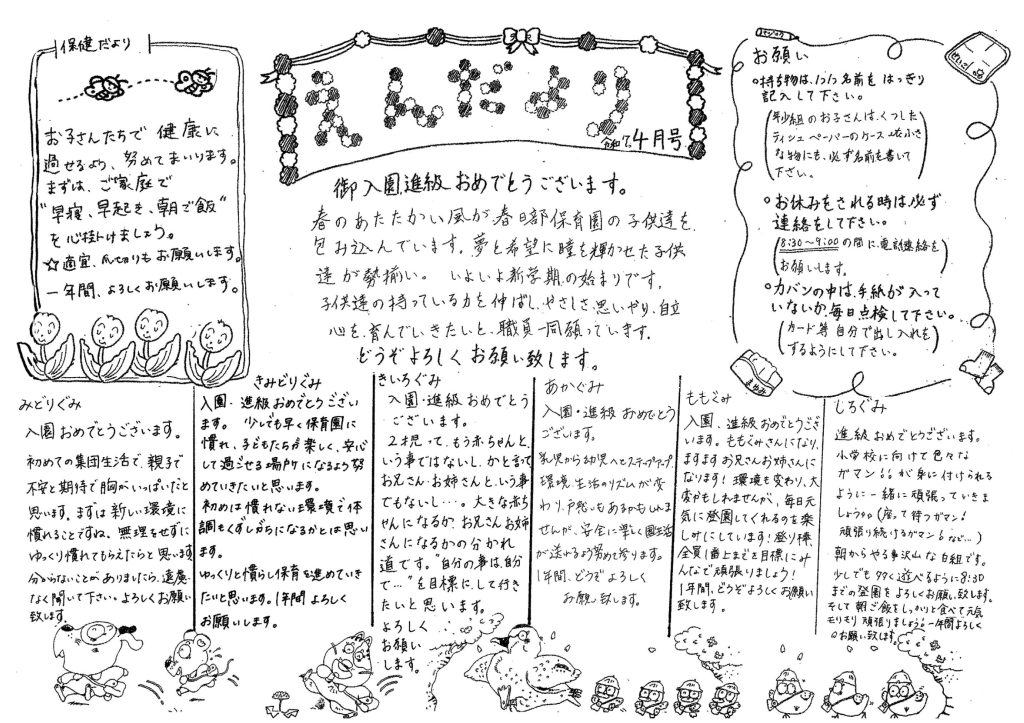 えんだより
令和7.4月号
保健だより
お子さんたちで 健康に
過せるよう、努めてまいります。
まずは、ご家庭で
"早寝、早起き、朝ご飯"
を心掛けましょう。
☆適宜、爪切りもお願いします。
一年間、よろしくお願いします。
御入園、進級おめでとうございます。
春のあたたかい風が春日部保育園の子供達を
包み込んでいます。夢と希望に瞳を輝かせた子供
達が勢揃い。 いよいよ新学期の始まりです。
子供達の持っている力を伸ばし、やさしさ、思いやり、自立
心を、育んでいきたいと、職員一同願っています。
どうぞよろしく お願い致します。
お願い
○持ち物は、1つ1つ名前を はっきり
記入して下さい。
(年少組のお子さんは、くつした
ティシュペーパーのケース etc小さ
な物にも、必ず名前を書いて
下さい。)
○お休みをされる時は必ず
連絡をして下さい。
(8:30〜9:00の間に、電話連絡を
お願いします。)
○カバンの中は、手紙が入って
いないか、毎日点検して下さい。
(カード等 自分で出し入れを
するようにして下さい。)
みどりぐみ
入園おめでとうございます。
初めての集団生活で、親子で
不安と期待で胸がいっぱいだと
思います。まずは新しい環境に
慣れることですね。無理をせずに
ゆっくり慣れてもらえたらと思います
分からないことがありましたら、遠慮
なく聞いて下さい。よろしくお願い
致します。
きみどりぐみ
入園・進級おめでとうござい
ます。 少しでも早く保育園に
慣れ、子どもたちが楽しく、安心
して過ごせる場所になるよう努
めていきたいと思います。
初めは慣れない環境で体
調もくずしがちになるかとは思い
ます。
ゆっくりと慣らし保育を進めていき
たいと思います。1年間よろしく
お願いします。
きいろぐみ
入園・進級おめでとう
ございます。
2才児って、もう赤ちゃんと、
いう事ではないし、かと言って
お兄さん・お姉さんという事
でもないし…。大きな赤ち
ゃんになるか、お兄さんお姉
さんになるかの分かれ
道です。"自分の事は、自分
で…"を目標にして行き
たいと思います。
よろしく
お願い
します。
あかぐみ
入園・進級おめでとう
ございます。
乳児から幼児へとステップアップ
環境、生活のリズムが変
わり、戸惑いもあるかもしれま
せんが、安全に楽しく園生活
が送れるよう努めて参ります。
1年間、どうぞよろしく
お願い致します。
ももぐみ
入園、進級おめでとうござ
います。ももぐみさんになり、
ますますお兄さんお姉さんに
なります！環境も変わり、大
変かもしれませんが、毎日元
気に登園してくれるのを楽
しみにしています！登り棒
全員1番上までを目標にみ
んなで頑張りましょう！
1年間、どうぞよろしくお願い
致します。
しろぐみ
進級おめでとうございます。
小学校に向けて色々な
ガマン！！が身に付けられる
ように一緒に頑張っていきま
しょう。(座って待つガマン！
頑張り続けるガマン！など…)
朝からやる事沢山な白組です。
少しでも多く遊べるように8:30
までの登園をよろしくお願い致します。
そして朝ご飯をしっかりと食べて元気
モリモリ頑張りましょう！一年間よろしく
お願い致します。